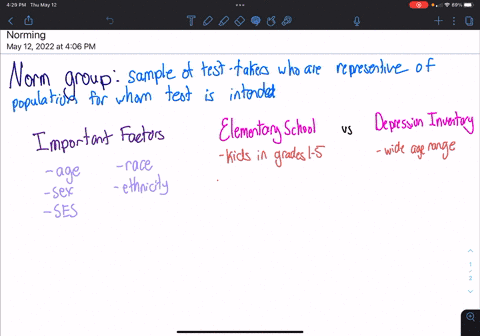 4:29 PM Thu May 12
89%
Norming
May 12, 2022 at 4:06 PM
Norm group: sample of test-takers who are representive of
populations for whom test is intended
Important Factors
Elementary School vs Depression Inventory
- age - race
- kids in grades 1-5
- wide age range
- sex - ethnicity
- SES
1
/
2